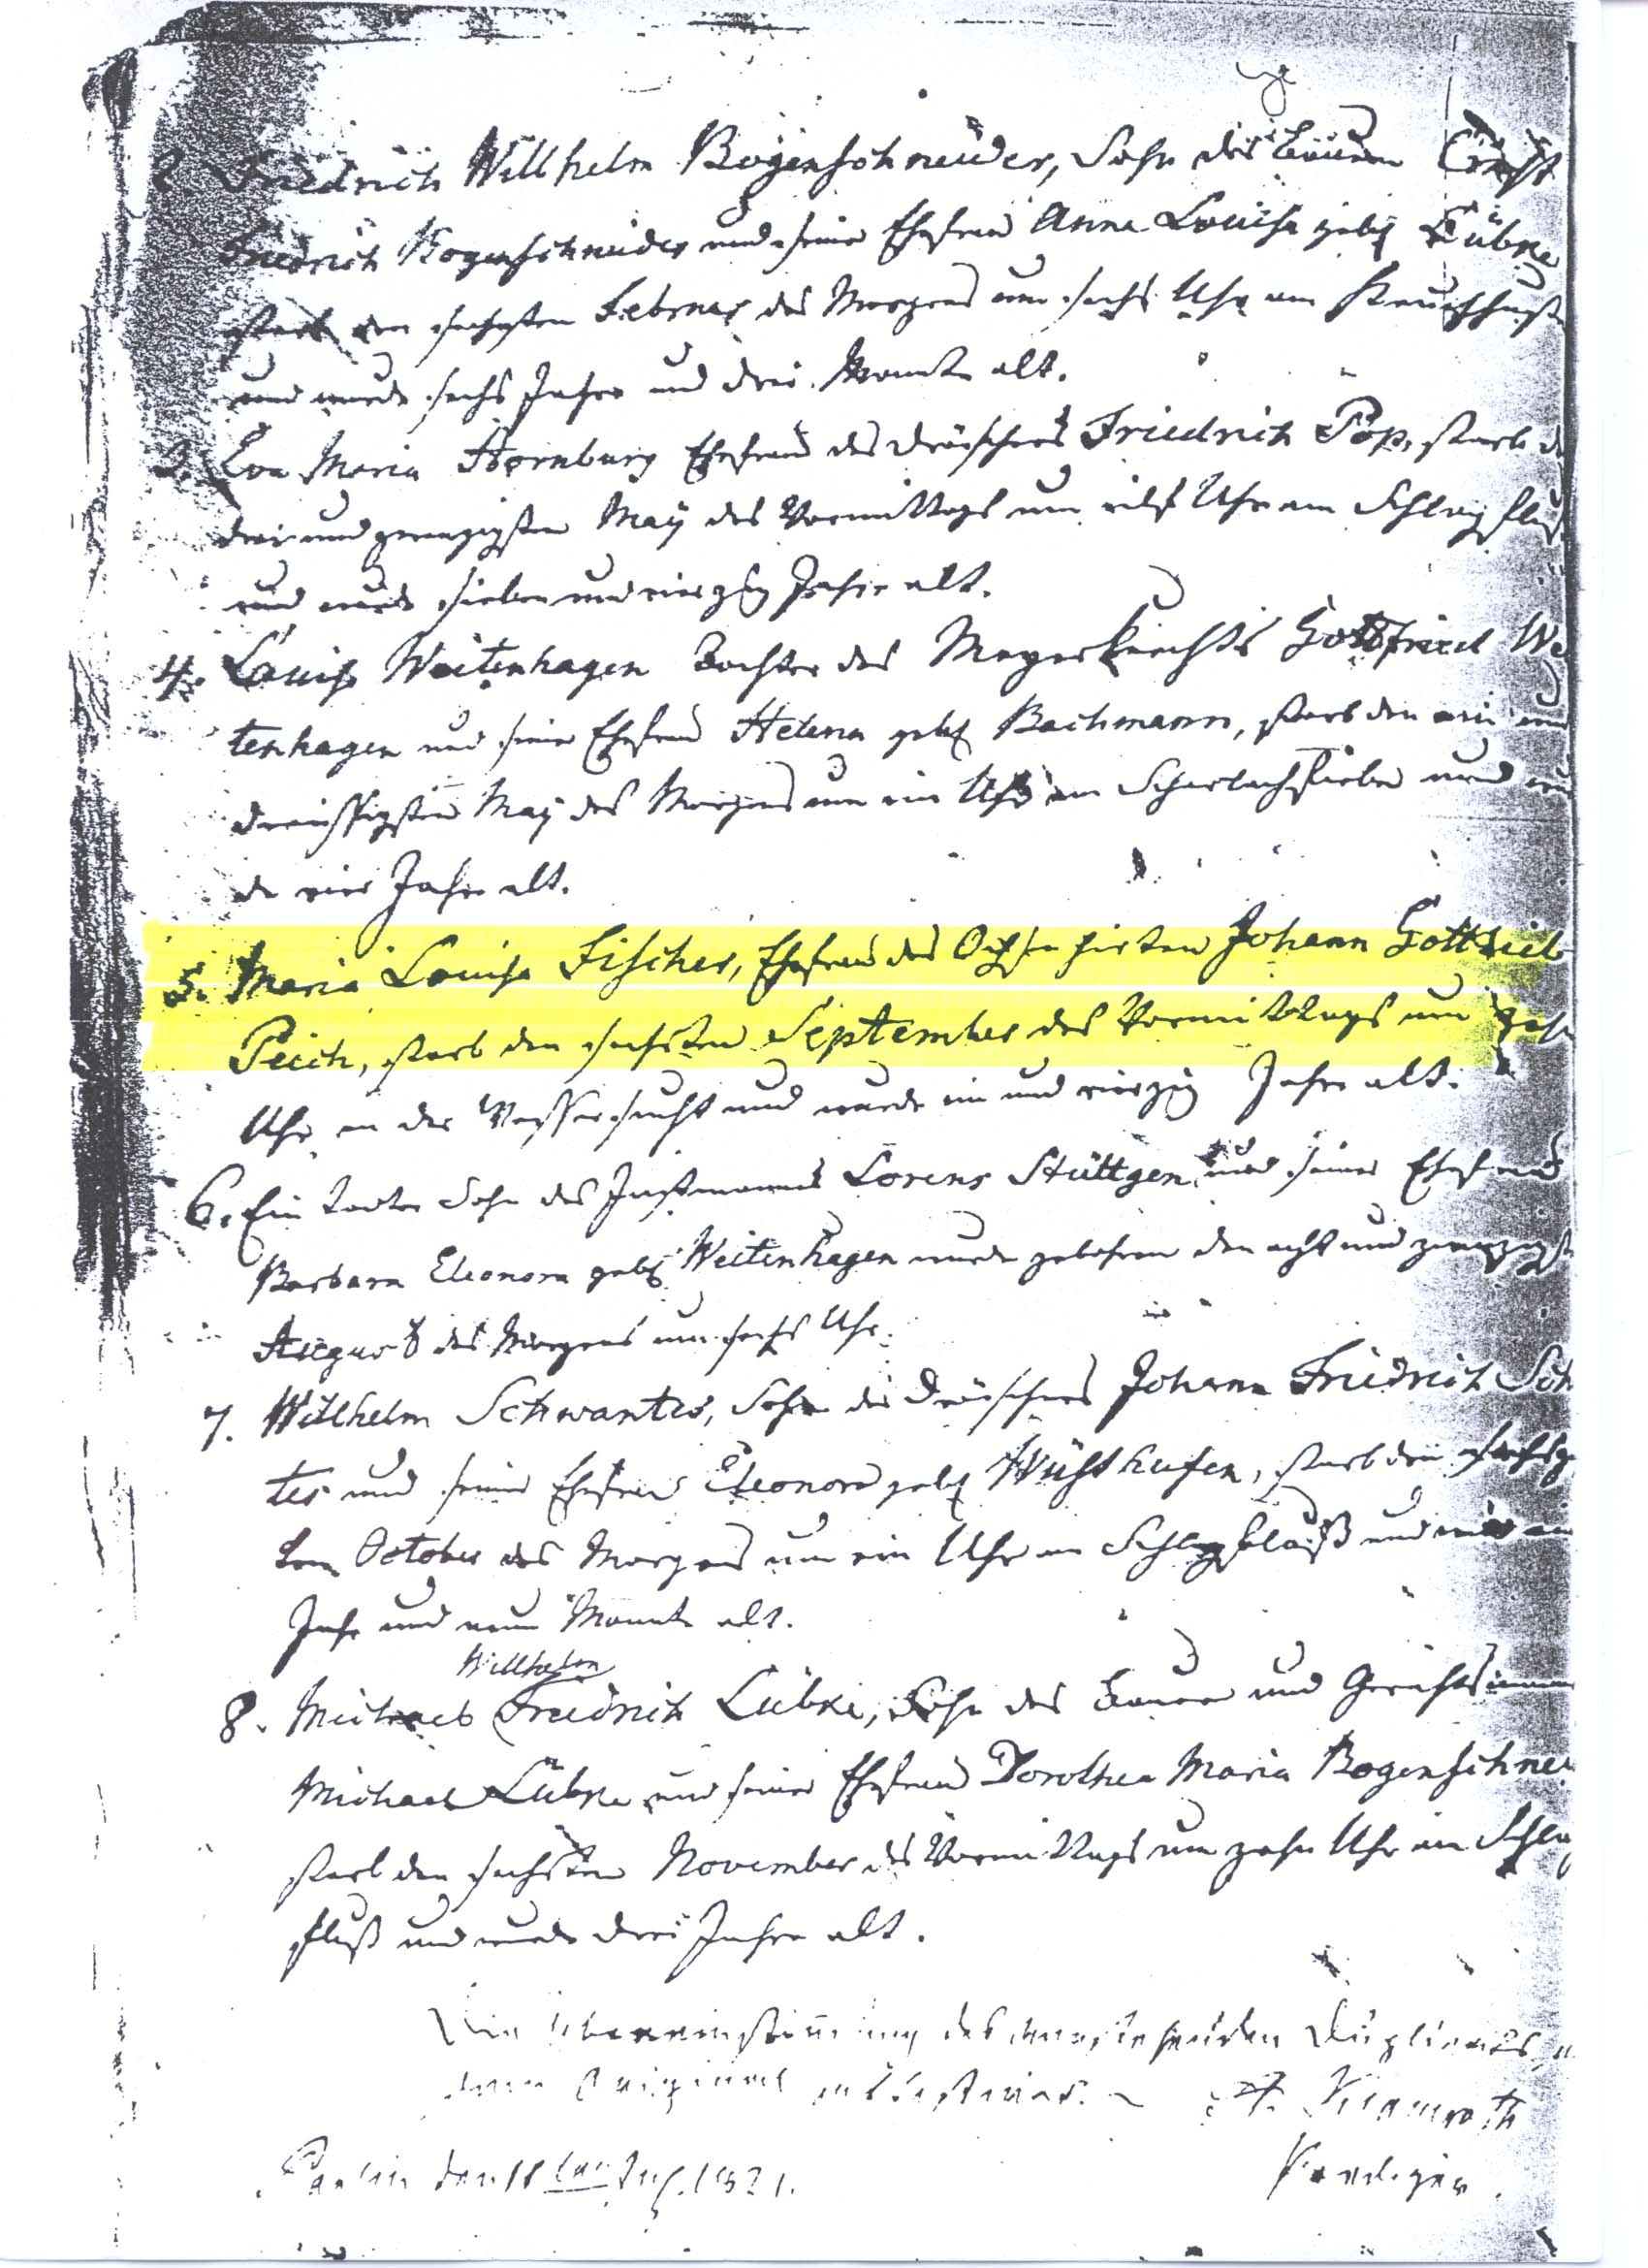 2. Friedrich Willhelm Bogenschneider, Sohn des Bauern Ernst
Friedrich Bogenschneider und seiner Ehefrau Anna Louisa geb. Lübke
starb den sechsten Februar des Morgens um sechs Uhr am
und wurde sechs Jahre und drei Monate alt.
3. Eva Maria Hornburg Ehefrau des Dreschers Friedrich Pop, starb
drei und zwanzigsten May des Vormittags um eilf Uhr am Schlagfluß
und wurde sieben und vierzig Jahre alt.
4. Louise Weitenhagen Tochter des Meyerknechts Gottfried We
tenhagen und seiner Ehefrau Helena geb. Bachmann, starb den ein und
dreissigsten May des Morgens um ein Uhr am Scharlachfieber und wur
de vier Jahre alt.
5. Maria Louisa Fischer, Ehefrau des Ochsenhirten Johann Gottlieb
Peich, starb den sechsten September des Vormittags um zehn
Uhr an der Wassersucht und wurde ein und vierzig Jahre alt.
6. Ein todter Sohn des Instmanns Lorenz Stüttgen und seiner Ehefrau
Barbara Eleonora geb. Weitenhagen wurde gebohren den acht und zwanzigst
August des Morgens um sechs Uhr.
7. Willhelm Schwantes, Sohn des Dreschers Johann Friedrich Sch
tes und seiner Ehefrau Eleonora geb. Wüsthufen, starb den
ten October des Morgens um ein Uhr am Schlagfluß und
Jahr und neun Monate alt.
Willhelm
8. Michael Friedrich Lübke, Sohn des Bauer und Gerichtsmann
Michael Lübke und seiner Ehefrau Dorothea Maria Bogenschnei
starb den sechsten November des Vormittags um zehn Uhr am Schlag
fluß und wurde drei Jahre alt.
Die Uebereinstimmung des vorstehenden Duplicats
dem Original attestirt.
Prediger
den 11 1821.